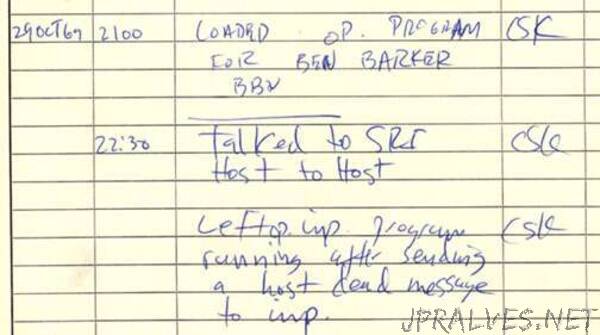 29OCT69 2100 LOADED OP. PROGRAM CSK
FOR BEN BARKER
BBN
22:30 Talked to SRI CSK
Host to Host
Left op. imp. program CSK
running after sending
a host dead message
to imp.
JPRALVES.NET